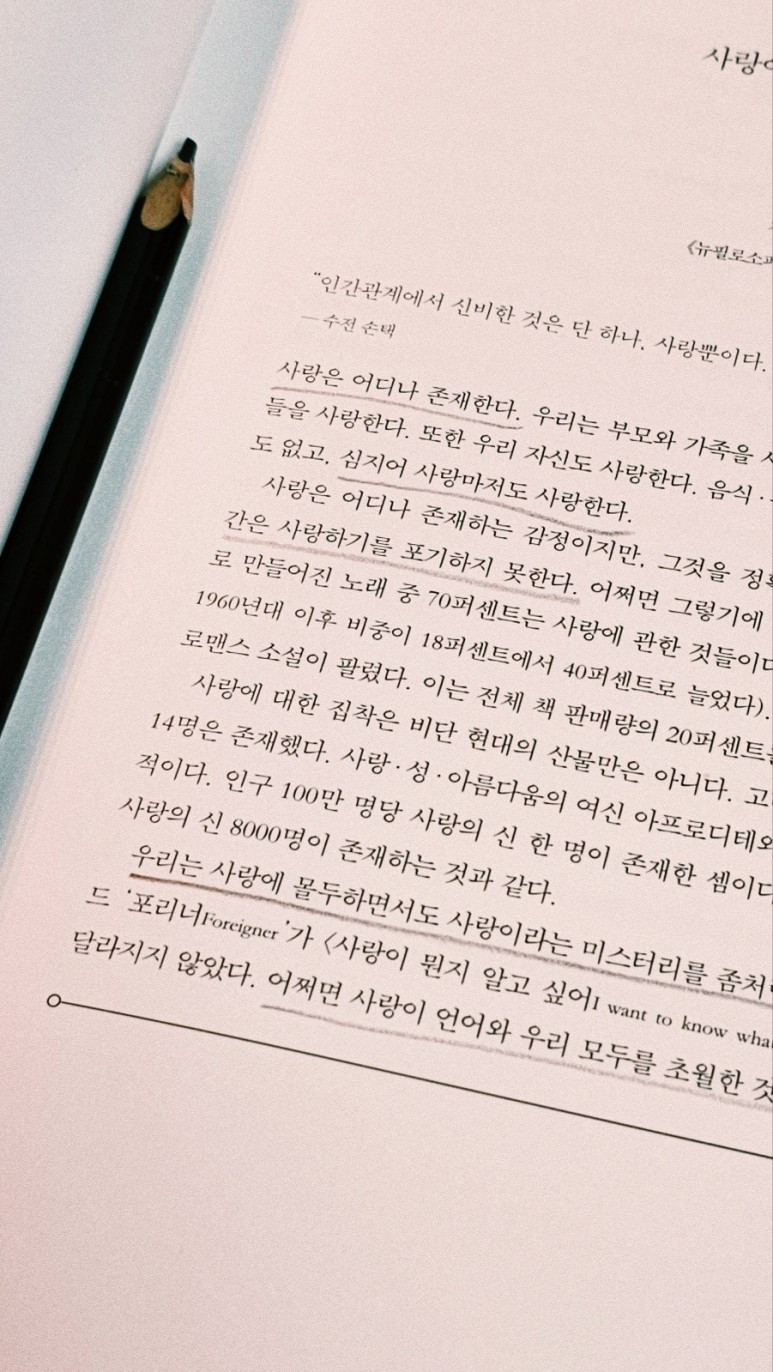 사랑
《뉴필로소
“인간관계에서 신비한 것은 단 하나, 사랑뿐이다.
—수전 손택
사랑은 어디나 존재한다. 우리는 부모와 가족을
들을 사랑한다. 또한 우리 자신도 사랑한다. 음식·
도 없고, 심지어 사랑마저도 사랑한다.
사랑은 어디나 존재하는 감정이지만, 그것을 정
간은 사랑하기를 포기하지 못한다. 어쩌면 그렇기에
로 만들어진 노래 중 70퍼센트는 사랑에 관한 것들이다
1960년대 이후 비중이 18퍼센트에서 40퍼센트로 늘었다).
로맨스 소설이 팔렸다. 이는 전체 책 판매량의 20퍼센트
사랑에 대한 집착은 비단 현대의 산물만은 아니다. 고
14명은 존재했다. 사랑·성·아름다움의 여신 아프로디테와
적이다. 인구 100만 명당 사랑의 신 한 명이 존재한 셈이다
사랑의 신 8000명이 존재하는 것과 같다.
우리는 사랑에 몰두하면서도 사랑이라는 미스터리를 좀처
드 ‘포리너Foreigner’가 〈사랑이 뭔지 알고 싶어I want to know wha
달라지지 않았다. 어쩌면 사랑이 언어와 우리 모두를 초월한 것